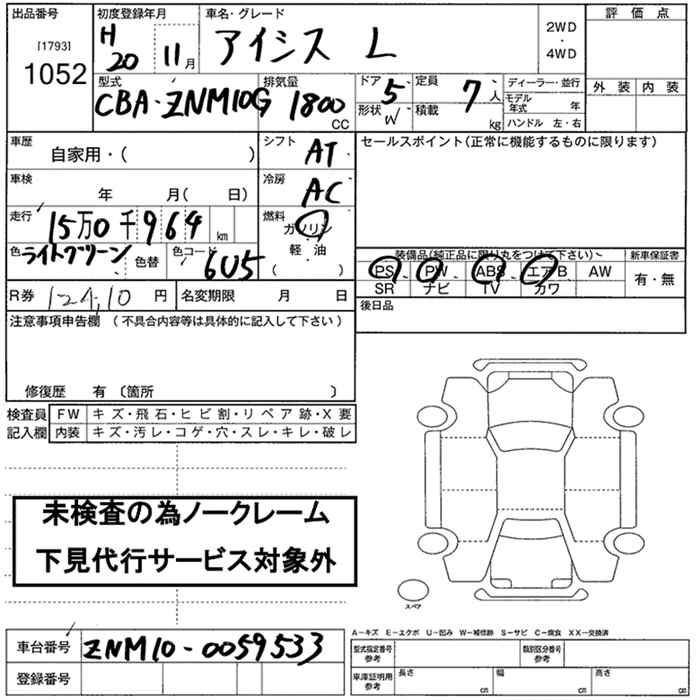 出品番号 初度登録年月 車名・グレード 評価点
[1793] H20 11月 アイシス L 2WD・4WD
1052
型式 排気量 ドア 5 定員 7人 ディーラー・並行 外装 内装
CBA-ZNM10G 1800CC 形状 W 積載 kg モデル年式 年
ハンドル 左・右
車歴 自家用・( ) シフト AT セールスポイント(正常に機能するものに限ります)
車検 年 月( 日) 冷房 AC
走行 15万0千964km 燃料 ガソリン
軽・油
( )
色 ライトグリーン 色替 色コード 6U5
装備品(純正品に限り丸をつけて下さい) 新車保証書
PS PW ABS エアB AW 有・無
SR ナビ TV カワ
R券 12,410円 名変期限 月 日 後日品
注意事項申告欄 (不具合内容等は具体的に記入して下さい)
修復歴 有 〔箇所 〕
検査員 FW キズ・飛石・ヒビ割・リペア跡・X要
記入欄 内装 キズ・汚レ・コゲ・穴・スレ・キレ・破レ
未検査の為ノークレーム
下見代行サービス対象外
スペア
A-キズ E-エクボ U-凹み W-補修跡 S-サビ C-腐食 XX-交換済
車台番号 ZNM10-0059533 型式指定番号 参考 類別区分番号 参考
登録番号 車庫証明用 参考 長さ cm 幅 cm 高さ cm